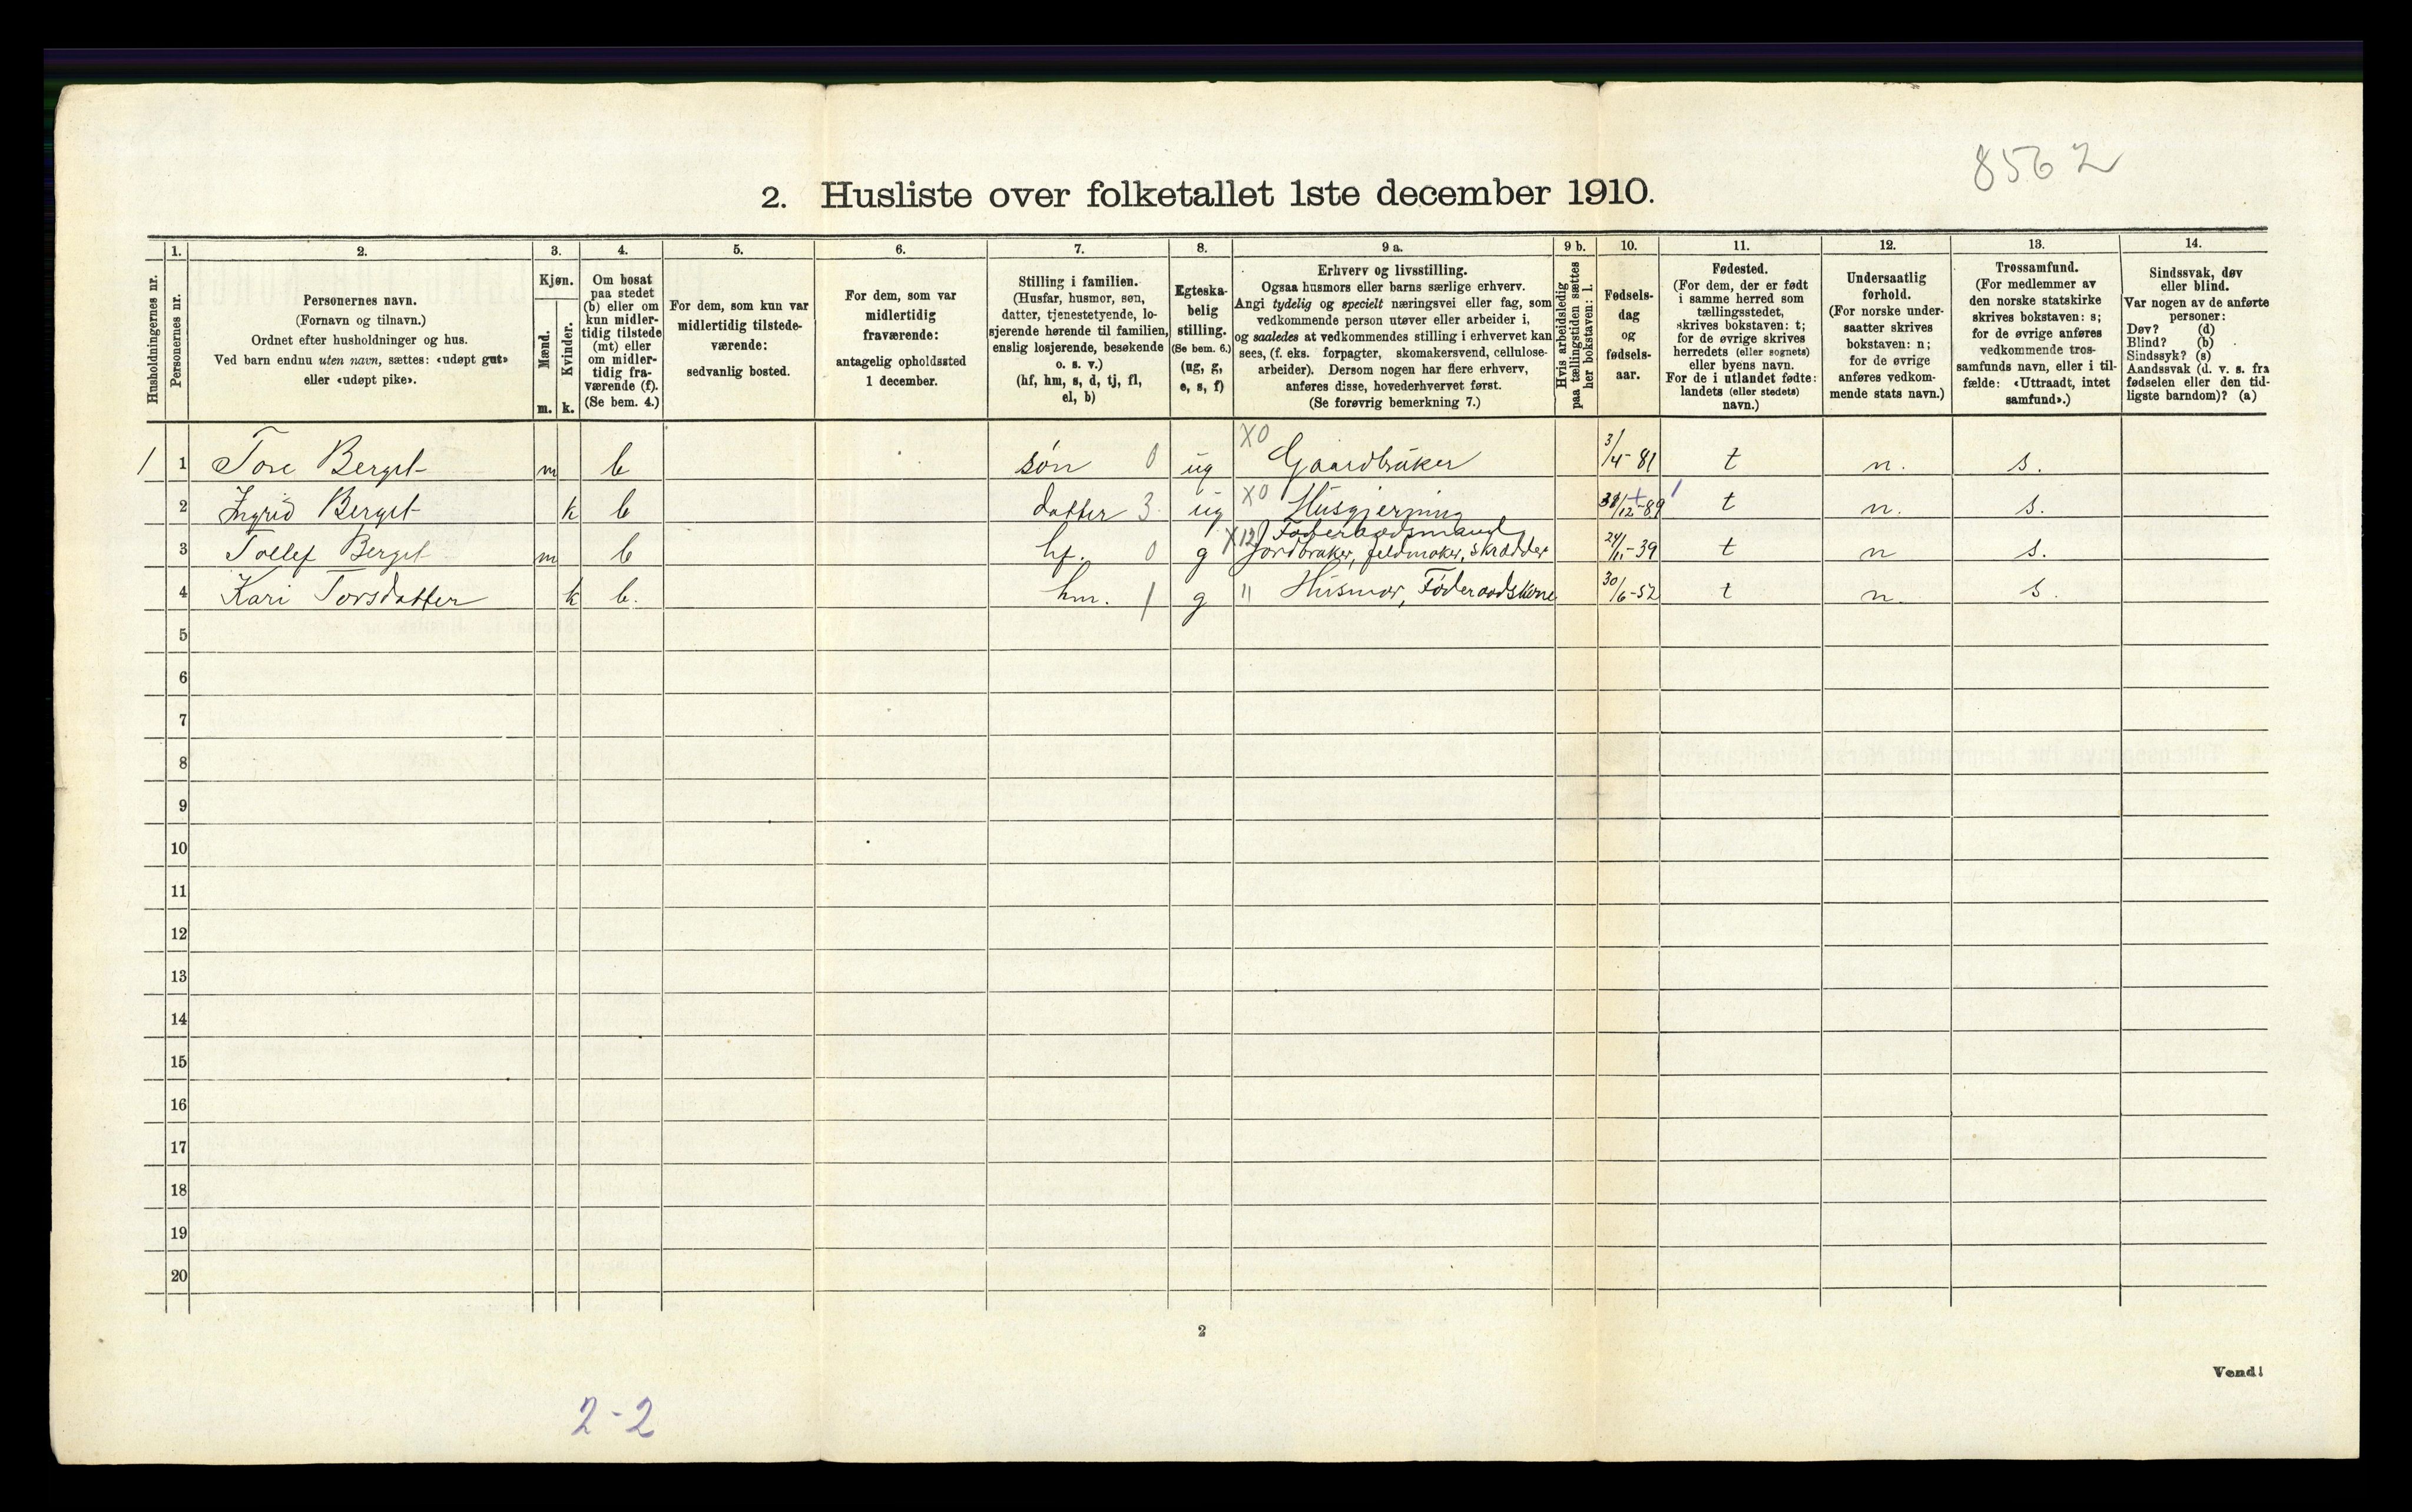 8562
2. Husliste over folketallet 1ste december 1910.
Husholdningernes nr.
1.
Personernes nr.
2.
Personernes navn.
(Fornavn og tilnavn.)
Ordnet efter husholdninger og hus.
Ved barn endnu uten navn, sættes: «udøpt gut»
eller «udøpt pike».
3.
Kjøn.
Mænd.
Kvinder.
m. k.
4.
Om bosat
paa stedet
(b) eller om
kun midler-
tidig tilstede
(mt) eller
om midler-
tidig fra-
værende (f).
(Se bem. 4.)
5.
For dem, som kun var
midlertidig tilstede-
værende:
sedvanlig bosted.
6.
For dem, som var
midlertidig
fraværende:
antagelig opholdssted
1 december.
7.
Stilling i familien.
(Husfar, husmor, søn,
datter, tjenestetyende, lo-
sjerende hørende til familien,
enslig losjerende, besøkende
o. s. v.)
(hf, hm, s, d, tj, fl,
el, b)
8.
Egteska-
belig
stilling.
(Se bem. 6.)
(ug, g,
e, s, f)
9 a.
Erhverv og livsstilling.
Ogsaa husmors eller barns særlige erhverv.
Angi tydelig og specielt næringsvei eller fag, som
vedkommende person utøver eller arbeider i,
og saaledes at vedkommendes stilling i erhvervet kan
sees, (f. eks. forpagter, skomakersvend, cellulose-
arbeider). Dersom nogen har flere erhverv,
anføres disse, hovederhvervet først.
(Se forøvrig bemerkning 7.)
9 b.
Hvis arbeidsledig
paa tællingstiden sættes
her bokstaven: l.
10.
Fødsels-
dag
og
fødsels-
aar.
11.
Fødested.
(For dem, der er født
i samme herred som
tællingsstedet,
skrives bokstaven: t;
for de øvrige skrives
herredets (eller sognets)
eller byens navn.
For de i utlandet fødte:
landets (eller stedets)
navn.)
12.
Undersaatlig
forhold.
(For norske under-
saatter skrives
bokstaven: n;
for de øvrige
anføres vedkom-
mende stats navn.)
13.
Trossamfund.
(For medlemmer av
den norske statskirke
skrives bokstaven: s;
for de øvrige anføres
vedkommende tros-
samfunds navn, eller i til-
fælde: «Uttraadt, intet
samfund».)
14.
Sindssvak, døv
eller blind.
Var nogen av de anførte
personer:
Døv? (d)
Blind? (b)
Sindssyk? (s)
Aandssvak (d. v. s. fra
fødselen eller den tid-
ligste barndom)? (a)
1 1 Tore Berget m b søn 0 ug X0 Gaardbruker 3/4-81 t n. s.
2 Ingrid Berget k b datter 3 ug X0 Husgjerning 12-89 t n. s.
3 Tollef Berget m b hf. 0 g X12 Føderaadsmand
Jordbruker, feldmaker, skrædder 24/11-39 t n s.
4 Kari Torsdatter k b. hm. 1 g " Husmor, Føderaadskone 30/6-52 t n. s.
5
6
7
8
9
10
11
12
13
14
15
16
17
18
19
20
2
Vend!
2-2